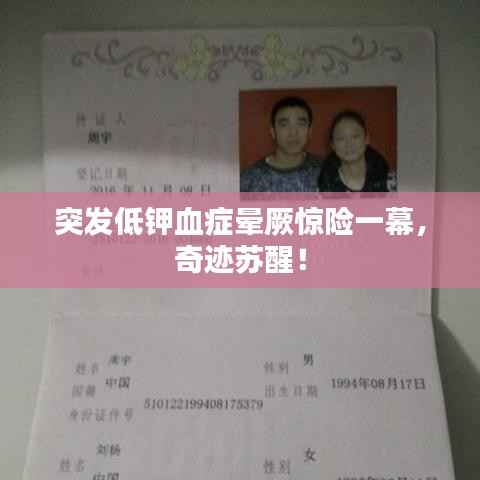 持证人
周宇
登记日期
2016年11月08日
突发低钾血症晕厥惊险一幕，
奇迹苏醒！
姓名 周宇 性别 男
国籍 中国 出生日期 1994年08月17日
身份证件号 510122199408175379
姓名 刘杨 性别 女
中国